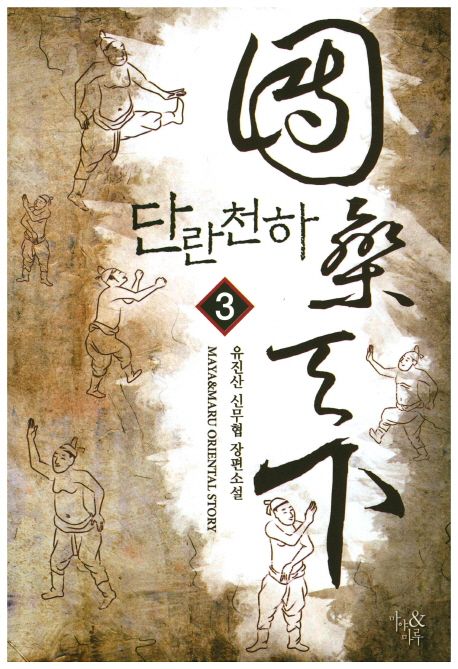 團欒天下
단란천하
3
유진산 신무협 장편소설
MAYA&MARU ORIENTAL STORY
마야&마루